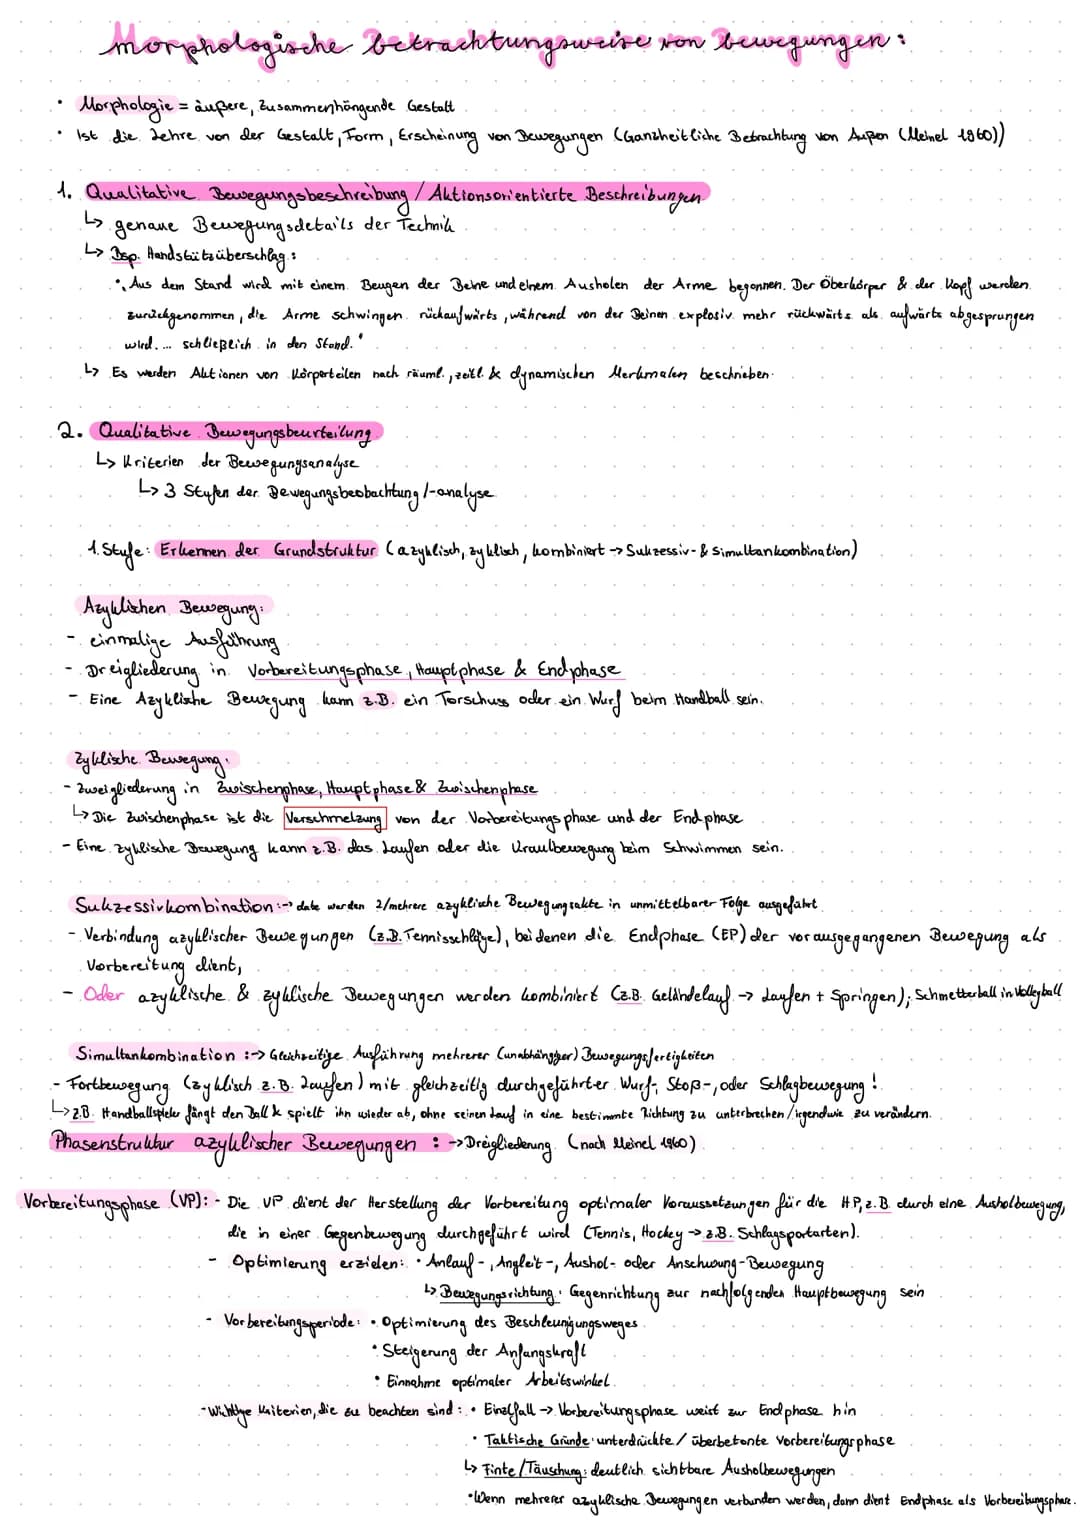 Morphologische betrachtungsweise von bewegungen:
• Morphologie = äußere, zusammenhängende Gestalt
• Ist die Lehre von der Gestalt, Form, Erscheinung von Bewegungen (Ganzheitliche Betrachtung von Außen (Meinel 1960))
1. Qualitative Bewegungsbeschreibung / Aktionsorientierte Beschreibungen
↳ genaue Bewegungsdetails der Technik
↳ Bsp. Handstützüberschlag:
• „Aus dem Stand wird mit einem Beugen der Beine und einem Ausholen der Arme begonnen. Der Oberkörper & der Kopf werden
zurückgenommen, die Arme schwingen rückaufwärts, während von der Beinen explosiv mehr rückwärts als aufwärts abgesprungen
wird. ... schließlich in den Stand."
↳ Es werden Aktionen von Körperteilen nach räuml., zeitl. & dynamischen Merkmalen beschrieben.
2. Qualitative Bewegungsbeurteilung
↳ Kriterien der Bewegungsanalyse
↳ 3 Stufen der Bewegungsbeobachtung /-analyse
1. Stufe: Erkennen der Grundstruktur (azyklisch, zyklisch, kombiniert → Sukzessiv- & Simultankombination)
Azyklischen Bewegung:
- einmalige Ausführung
- Dreigliederung in Vorbereitungsphase, Hauptphase & Endphase
- Eine Azyklische Bewegung kann z.B. ein Torschuss oder ein Wurf beim Handball sein.
Zyklische Bewegung:
- Zweigliederung in Zwischenphase, Hauptphase & Zwischenphase
↳ Die Zwischenphase ist die Verschmelzung von der Vorbereitungsphase und der Endphase
- Eine zyklische Bewegung kann z.B. das Laufen oder die Kraulbewegung beim Schwimmen sein.
Sukzessivkombination: → dabe werden 2/mehrere azyklische Bewegungsakte in unmittelbarer Folge ausgeführt
- Verbindung azyklischer Bewegungen (z.B. Tennisschläge), bei denen die Endphase (EP) der vorausgegangenen Bewegung als
Vorbereitung dient,
- Oder azyklische & zyklische Bewegungen werden kombiniert (z.B. Geländelauf → Laufen + Springen); Schmetterball in Volleyball
Simultankombination: → Gleichzeitige Ausführung mehrerer (unabhängiger) Bewegungsfertigkeiten
- Fortbewegung (zyklisch z.B. Laufen) mit gleichzeitig durchgeführter Wurf-, Stoß-, oder Schlagbewegung!
↳ z.B. Handballspieler fängt den Ball & spielt ihn wieder ab, ohne seinen Lauf in eine bestimmte Richtung zu unterbrechen / irgendwie zu verändern.
Phasenstruktur azyklischer Bewegungen: → Dreigliederung (nach Meinel 1960)
Vorbereitungsphase (VP): - Die VP dient der Herstellung der Vorbereitung optimaler Voraussetzungen für die HP, z.B. durch eine Ausholbewegung,
die in einer Gegenbewegung durchgeführt wird (Tennis, Hockey → z.B. Schlagsportarten).
- Optimierung erzielen: • Anlauf-, Angleit-, Aushol- oder Anschwung-Bewegung
↳ Bewegungsrichtung: Gegenrichtung zur nachfolgenden Hauptbewegung sein
- Vorbereitungsperiode: • Optimierung des Beschleunigungsweges
• Steigerung der Anfangskraft
• Einnahme optimaler Arbeitswinkel
- Wichtige Kriterien, die zu beachten sind: • Einzelfall → Vorbereitungsphase weist zur Endphase hin
• Taktische Gründe: unterdrückte / überbetonte Vorbereitungsphase
↳ Finte / Täuschung: deutlich sichtbare Ausholbewegungen
• Wenn mehrerer azyklische Bewegungen verbunden werden, dann dient Endphase als Vorbereitungsphase.